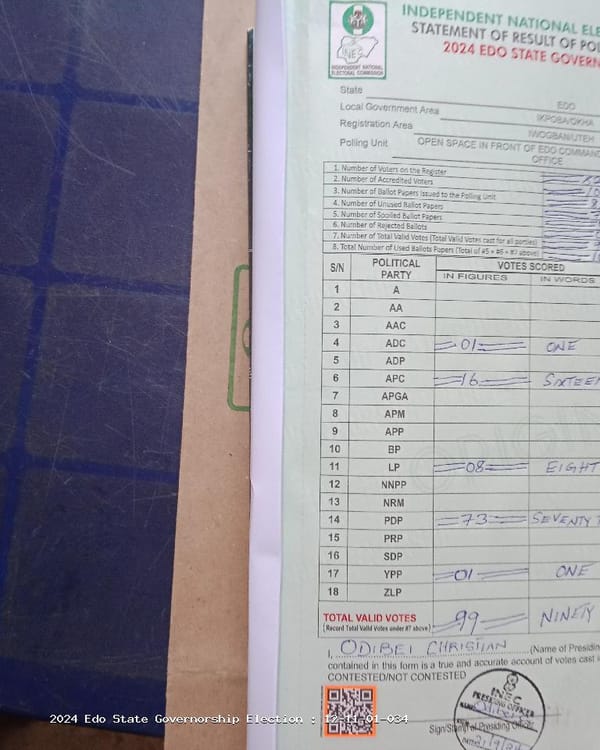 INDEPENDENT NATIONAL ELE
STATEMENT OF RESULT OF POL
2024 EDO STATE GOVERN
INEC
INDEPENDENT NATIONAL
ELECTORAL COMMISSION
State EDO
Local Government Area IKPOBA/OKHA
Registration Area IWOGBAN/UTEH
Polling Unit OPEN SPACE IN FRONT OF EDO COMMAND
OFFICE
1. Number of Voters on the Register
2. Number of Accredited Voters
3. Number of Ballot Papers Issued to the Polling Unit
4. Number of Unused Ballot Papers
5. Number of Spoiled Ballot Papers
6. Number of Rejected Ballots
7. Number of Total Valid Votes (Total Valid Votes cast for all parties)
8. Total Number of Used Ballots Papers (Total of #5 + #6 + #7 above)
S/N POLITICAL PARTY VOTES SCORED
IN FIGURES IN WORDS
1 A
2 AA
3 AAC
4 ADC 01 ONE
5 ADP
6 APC 16 SIXTEEN
7 APGA
8 APM
9 APP
10 BP
11 LP 08 EIGHT
12 NNPP
13 NRM
14 PDP 73 SEVENTY
15 PRP
16 SDP
17 YPP 01 ONE
18 ZLP
TOTAL VALID VOTES 99 NINETY
(Record Total Valid Votes under #7 above)
I, ODIBEI CHRISTIAN (Name of Presidin
contained in this form is a true and accurate account of votes cast i
CONTESTED/NOT CONTESTED
INEC
PRESIDING OFFICER
Sign/Stamp of Presiding Officer
2024 Edo State Governorship Election : 12-11-01-034